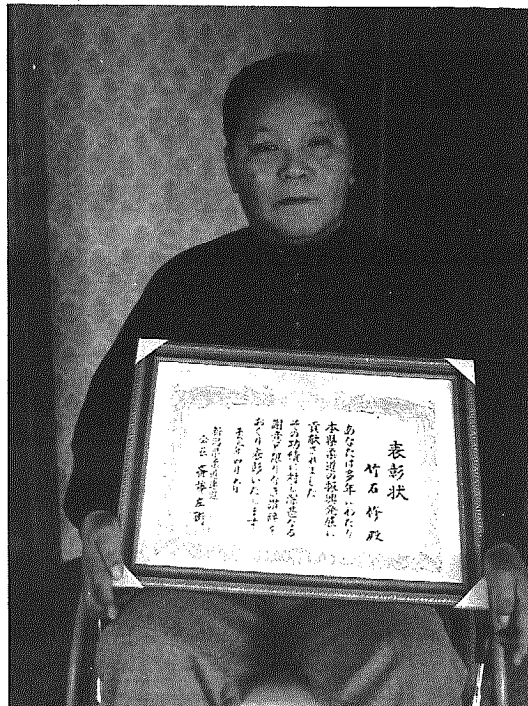 表彰状
竹石修殿
あなたは多年にわたり
本県柔道の振興発展に
貢献されました
その功績に対し深甚なる
謝意と限りなき讃辞を
おくり表彰いたします
新潟県柔道連盟
会長